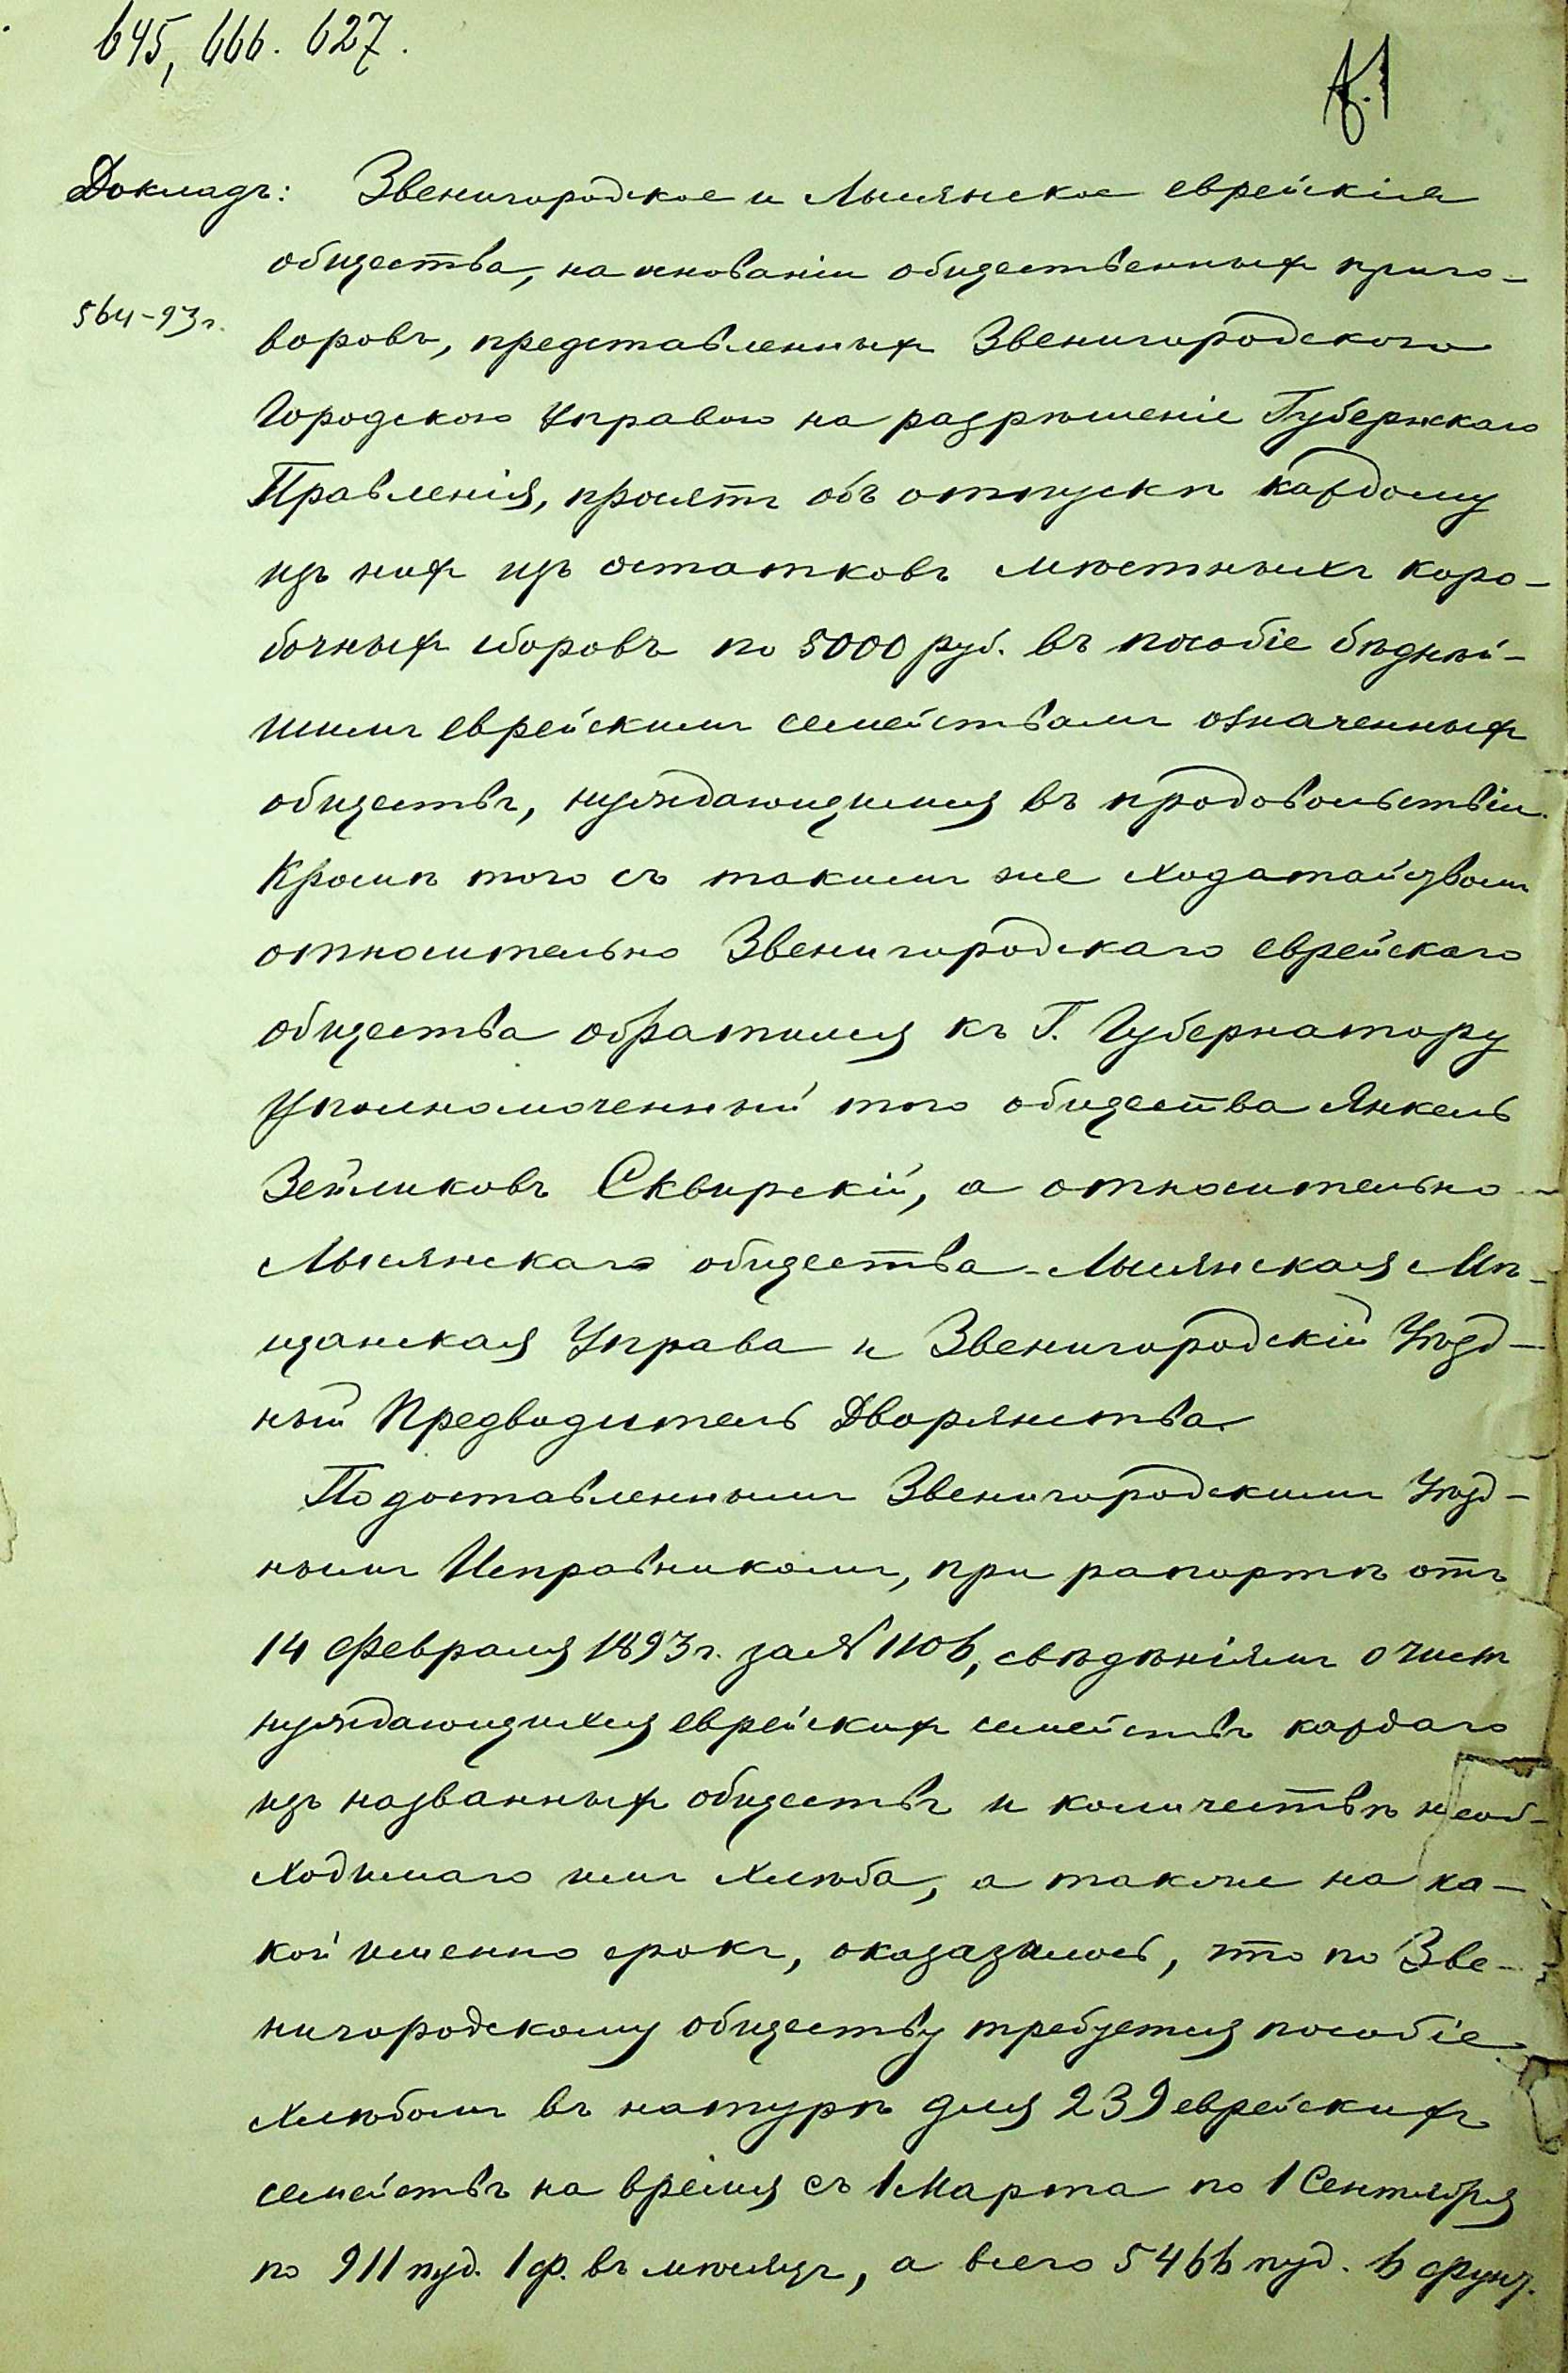 645, 666. 627.
Докладъ: Звенигородское и Лысянское еврейскія
общества, на основаніи общественныхъ приго-
564-93г.
воровъ, представленныхъ Звенигородскою
Городскою Управою на разрѣшеніе Губернскаго
Правленія, просятъ объ отпускѣ каждому
изъ нихъ изъ остатковъ мѣстныхъ коро-
бочныхъ сборовъ по 5000 руб. въ пособіе бѣднѣй-
шимъ еврейскимъ семействамъ означенныхъ
обществъ, нуждающимися въ продовольствіи.
Кромѣ того съ такимъ же ходатайствомъ
относительно Звенигородскаго еврейскаго
общества обратился къ Г. Губернатору
Уполномоченный того общества Янкель
Зейликовъ Сквирскій, а относительно
Лысянскаго общества - Лысянская Мѣ-
щанская Управа и Звенигородскій Уѣзд-
ный Предводитель Дворянства.
По доставленнымъ Звенигородскимъ Уѣзд-
нымъ Исправникомъ, при рапортѣ отъ
14 февраля 1893 г. за № 1106, свѣдѣніямъ о числѣ
нуждающихся еврейскихъ семействъ каждаго
изъ названныхъ обществъ и количествѣ необ-
ходимаго имъ хлѣба, а также на ка-
кой именно срокъ, оказазалось, что по Зве-
нигородскому обществу требуется пособіе
хлѣбомъ въ натурѣ для 239 еврейскихъ
семействъ на время съ 1 Марта по 1 Сентября
по 911 пуд. 1 ф. въ мѣсяцъ, а всего 5466 пуд. 6 фунт.